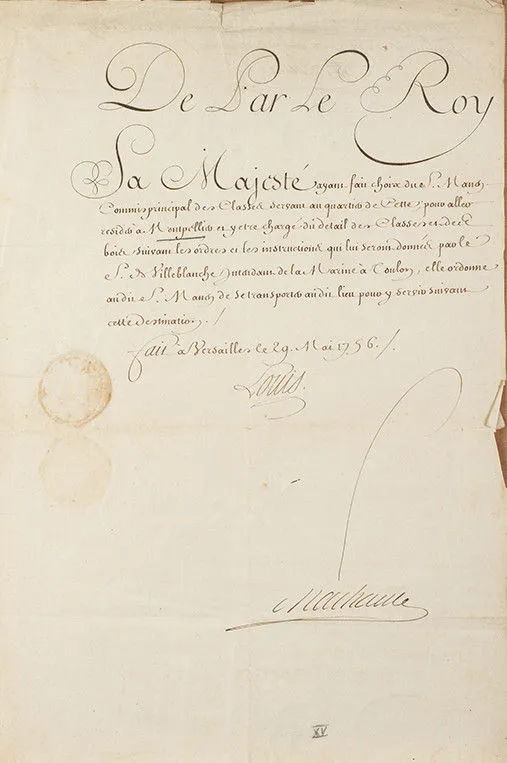 De Par Le Roy
Sa Majesté ayant fait choix du S. Mans
Commis principal des Classes servant au quartier de Cette pour aller
resider a Montpellier et y etre chargé du detail des Classes et des
bois suivant les ordres et les instructions qui lui seront données par le
S. de Villeblanche Intendant de la Marine à Toulon, elle ordonne
au dit S. Mans de se transporter au dit lieu pour y servir suivant
cette destination./.
fait a Versailles le 29. Mai 1756./.
Louis.
Machault
XV